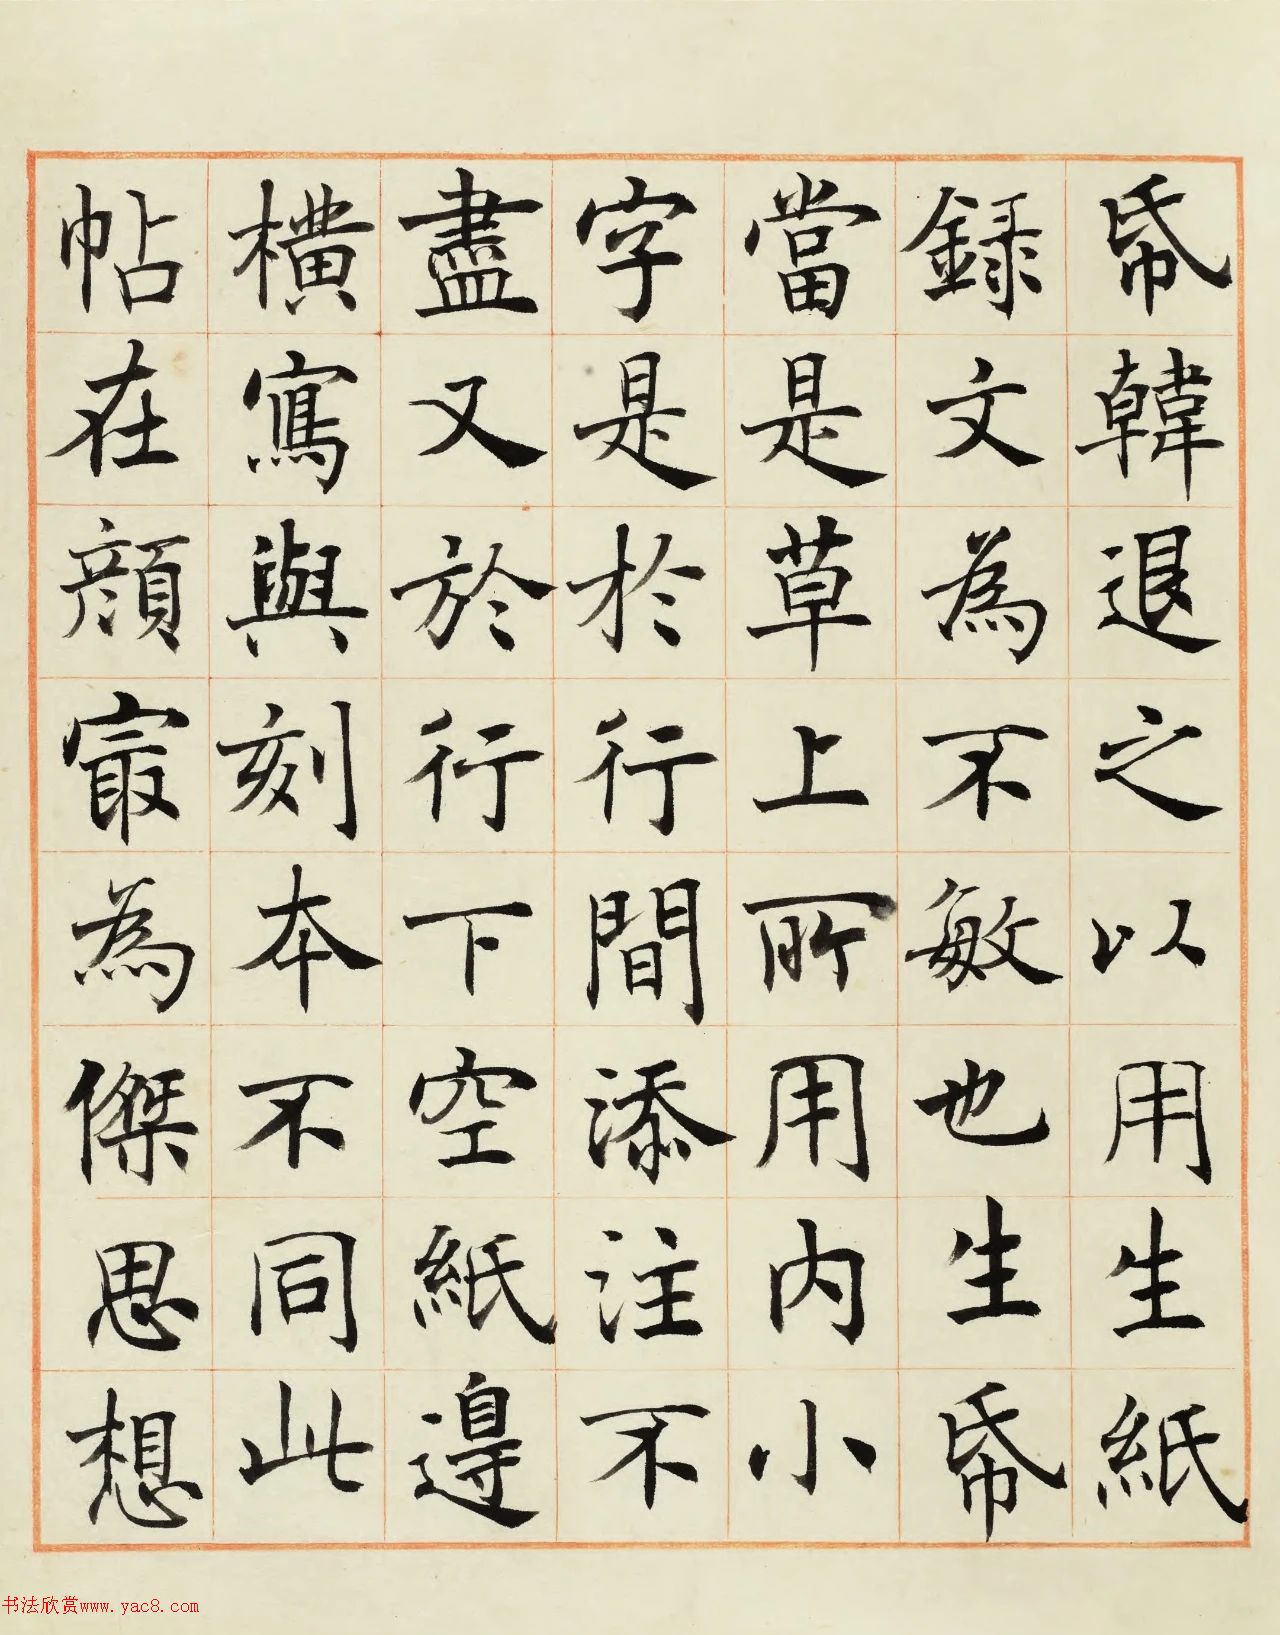 帋韓退之以用生紙
録文為不敏也生帋
當是草上所用内小
字是於行間添注不
盡又於行下空紙邉
横寫與刻本不同此
帖在顔冣為傑思想
书法欣赏www.yac8.com